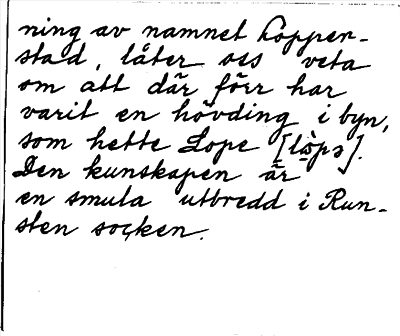 ning av namnet Lopper-
stad, låter oss veta
om att där förr har
varit en hövding i byn,
som hette Lope [lòpə].
Den kunskapen är
en smula utbredd i Run-
sten socken.